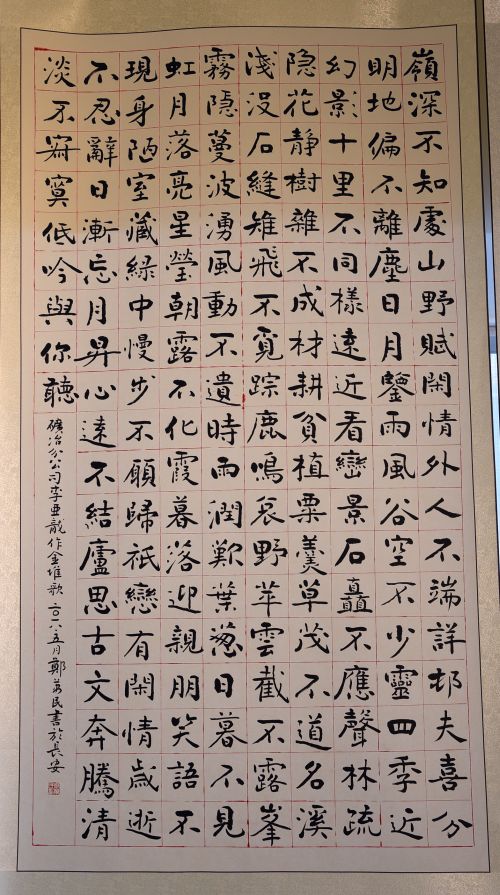 嶺深不知處山野賦閑情外人不端詳邨夫喜分
明地偏不離塵日月鑒雨風谷空不少靈四季近
幻影十里不同樣遠近看巒景石矗不應聲林疏
隐花靜樹雜不成材耕貧植粟羹草茂不道名溪
淺没石縫雉飛不覓踪鹿鳴哀野苹雲截不露峯
霧隱蔓波湧風動不遺時雨潤歎葉葱日暮不見
虹月落亮星瑩朝露不化霞暮落迎親朋笑語不
現身陋室藏緑中慢步不願歸祇戀有閑情歲逝
不忍辭日漸忘月昇心遠不結廬思古文奔騰清
淡不寂寞低吟與你聽
礦冶分公司李亜龍作金堆歌 二〇一八.五月鄭民書於長安